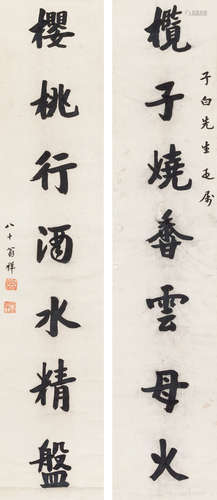 子白先生正屬
欖子燒香雲母火
櫻桃行酒水精盤
八十翁祥